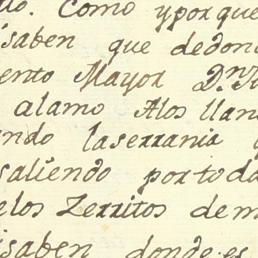 Como yporque
saben que dedon
ento Mayor Dn
alamo Alos llan
ndo laserrania
saliendo portoda
elos Zerritos dem
isaben donde es